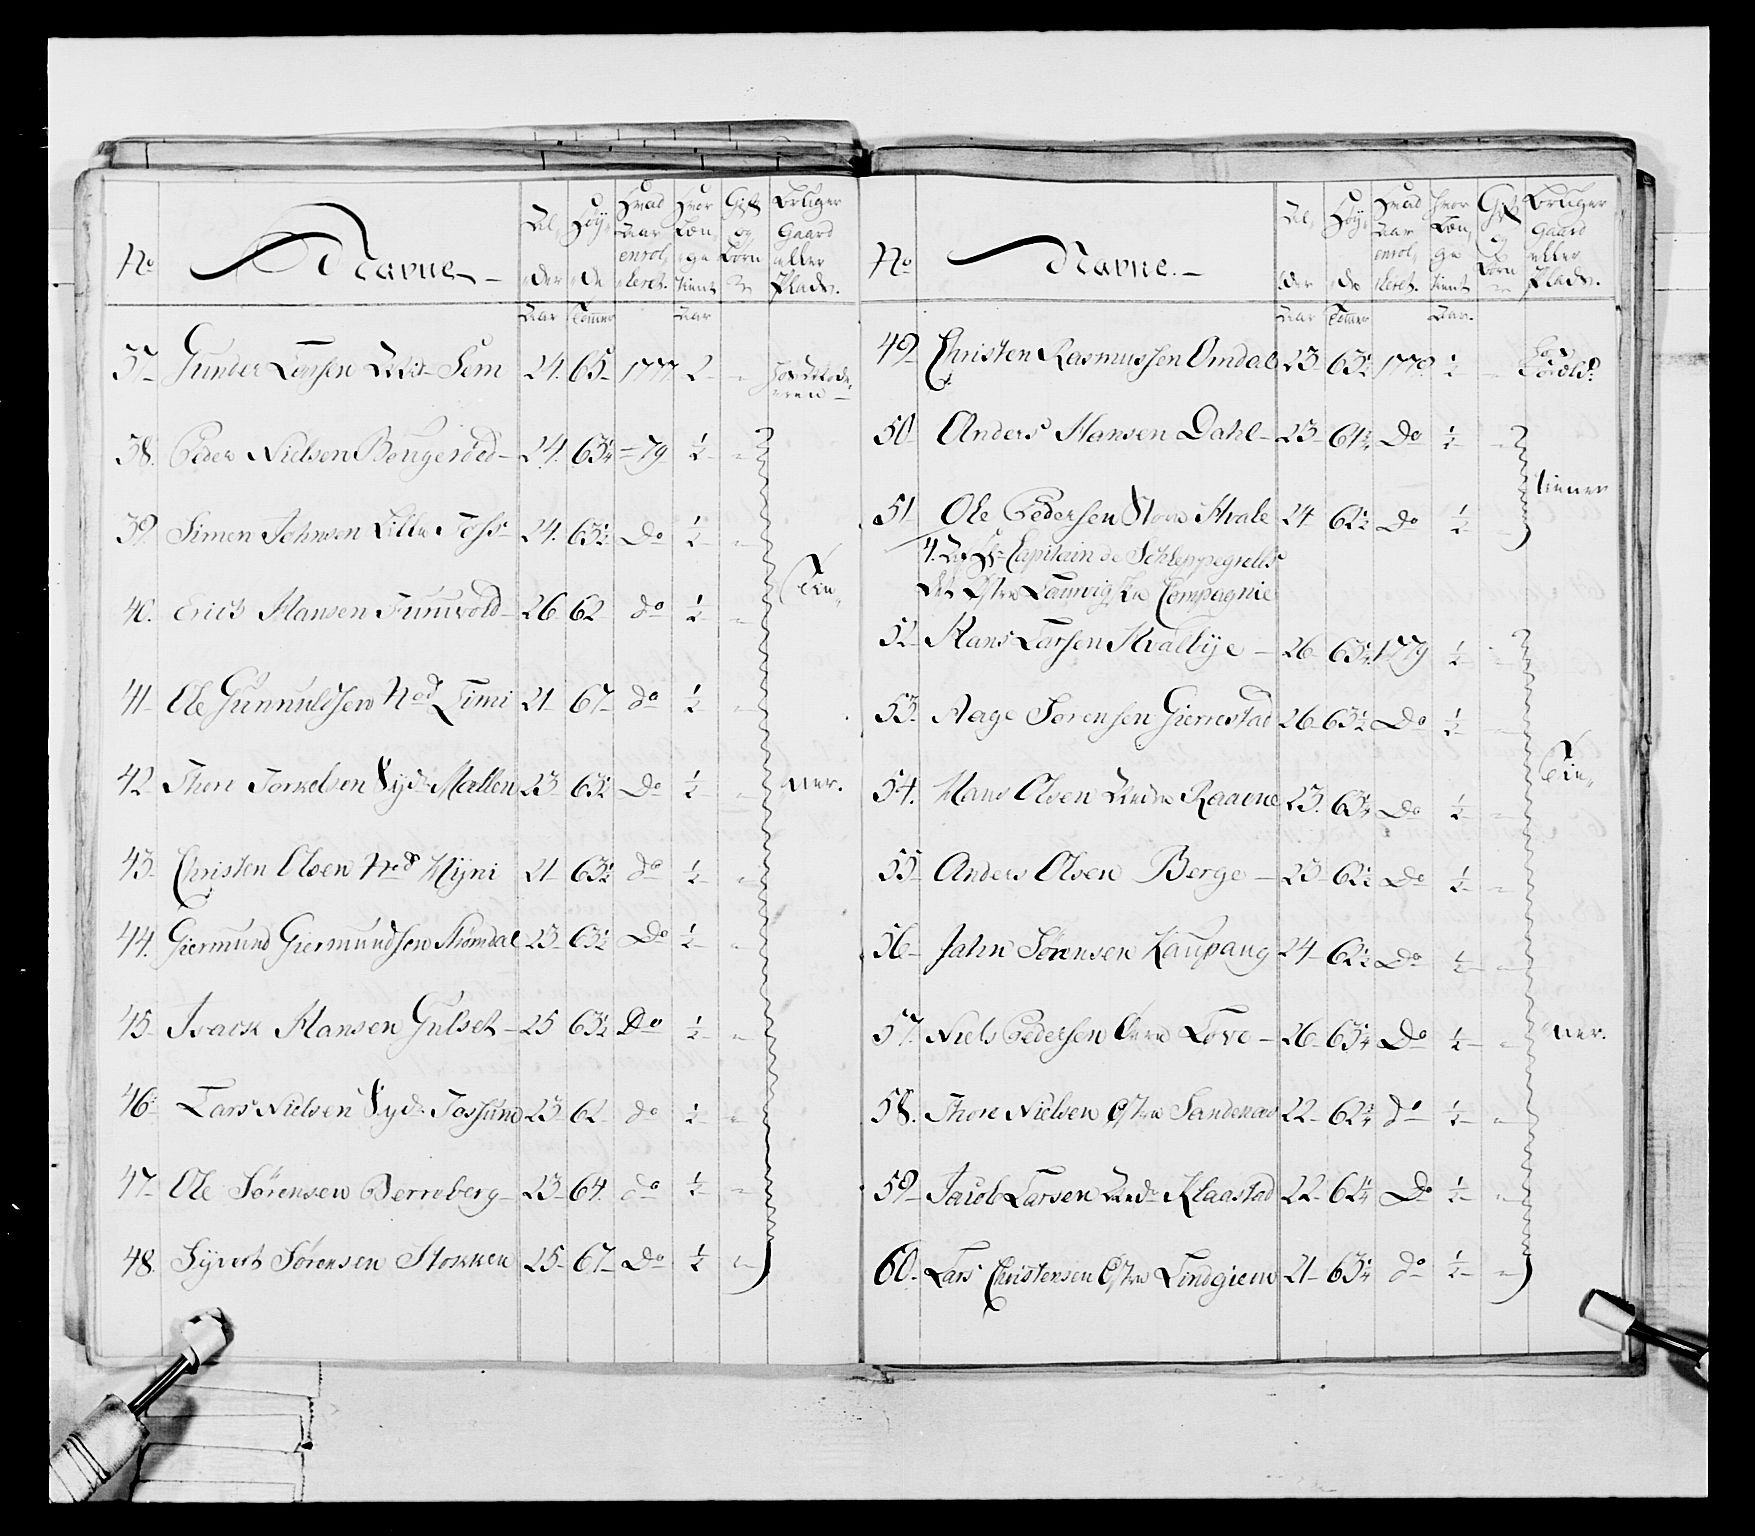 No Navne Al,,der Høy,,de Hvad Aar enrol,,leret. Hvor Læn,,ge tient Gift og Børn Bruger Gaard eller Plads.
Aar Tommer Aar
37 Gunder Larsen Sem 24. 65 1777 2 "
38. Peder Nielsen Bougerød 24. 63¼ = 79 ½ "
39. Simen Johnsen Lille 24. 63½ Do ½ "
40. Erich Hansen 26 62 do ½ "
Tie,,
41 Ole Gunnuldsen Ned Limi 21 67 do ½ "
42 Thore Torkelsen Syd Mællen 23 63½ Do ½ " ner.
43 Christen Olsen Ned Mijni 21 63½ do ½ "
44. Giermund Giermundsen Strømdal 23 63½ Do ½ "
45 Isack Hansen Gulset 25 63½ Do ½ "
46 Lars Nielsen Syd Fossund 23 62 do ½ "
47 Ole Sørensen Berreberg 23 64. do ½ "
48. Syvert Sørensen Stokken 25 67 Do ½ "
No Navne. Al,,der Høy,,de Hvad Aar enrol,,leret. Hvor Læn,,ge tient Gift og Børn Bruger Gaard eller Plads.
Aar Tommer Aar.
49 Christen Rasmussen Omdal 23 63½ 1779 ½ " hos
50 Anders Hansen Dahl 23 61½ Do ½ "
tiener
51 Ole Pedersen Store Hvale 24 62½ Do ½ "
Capitain de Schleppegrells
Laurvigske Compagnie
52 Hans Larsen Hvalbye 26 63¼ 1779 ½ "
53. Aage Sørensen Gierrestad 26 63½ Do ½ "
Tie,,
54. Hans Olsen Nedre Raavne 23. 63¼ Do ½ "
55 Anders Olsen Berge 23 62½ Do ½ "
56 Jahn Sørensen Kaupang 24 62½ Do ½ "
57. Niels Pedersen Øvre Løve 26 63¼ Do ½ " ner.
58. Thore Nielsen Østre Sandenas 22 62¾ do ½ "
59 Jacob Larsen Nedr Klaastad 22 62¼ Do ½ "
60. Lars Christensen Østre Lindgiern 21 63¼ do ½ "